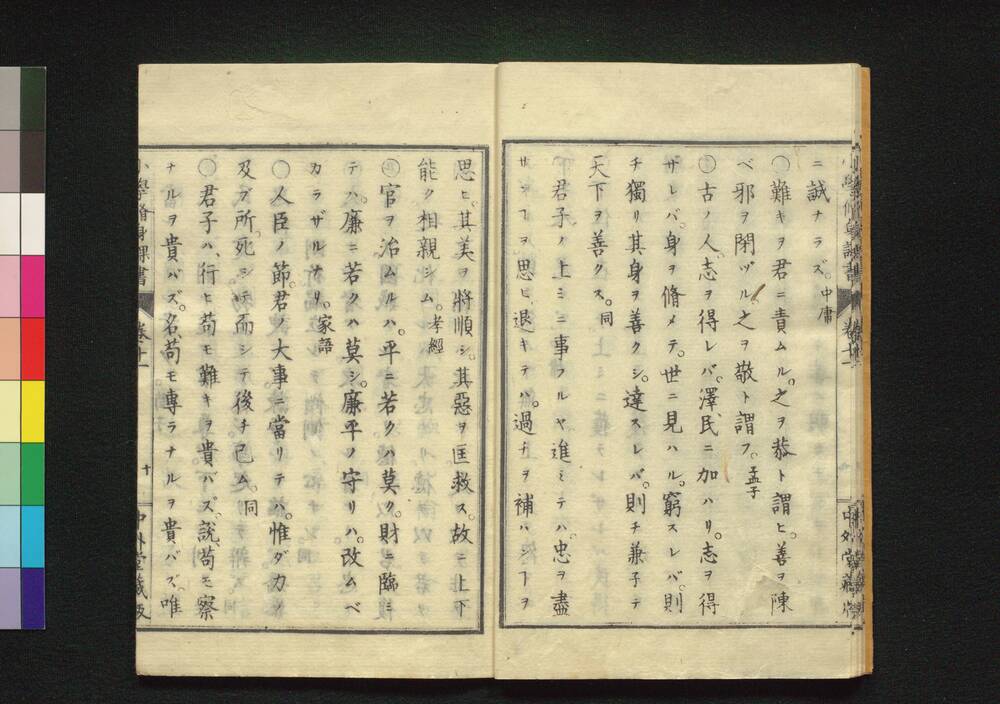 ニ誠ナラズ。中庸
○難キヲ君ニ責ムル。之ヲ恭ト謂ヒ。善ヲ陳
ベ邪ヲ閉ヅル。之ヲ敬ト謂フ。孟子
○古ノ人。志ヲ得レバ。澤民ニ加ハリ。志ヲ得
ザレバ。身ヲ脩メテ。世ニ見ハル。窮スレバ。則
チ獨リ其身ヲ善クシ。達スレバ。則チ兼子テ
天下ヲ善クス。同
君子ノ上ミニ事フルヤ進ミテハ。忠ヲ盡
サンヿヲ思ヒ。退キテハ。過チヲ補ハンヿヲ
思ヒ。其美ヲ將順シ。其惡ヲ匡救ス。故ニ上下
能ク相親シム。孝經
○官ヲ治ムルハ。平ニ若クハ莫ク。財ニ臨ミ
テハ。廉ニ若クハ莫シ。廉平ノ守リハ。改ムベ
カラザルナリ。家語
○人臣ノ節。君ノ大事ニ當リテハ。惟ダ力ノ
及ブ所。死シテ而シテ後チ已ム。同
○君子ハ、行ヒ苟モ難キヲ貴バズ。說、苟モ察
ナルヲ貴バズ。名、苟モ專ラナルヲ貴バズ。唯
小學脩身課書 卷十一 十 中外堂藏版